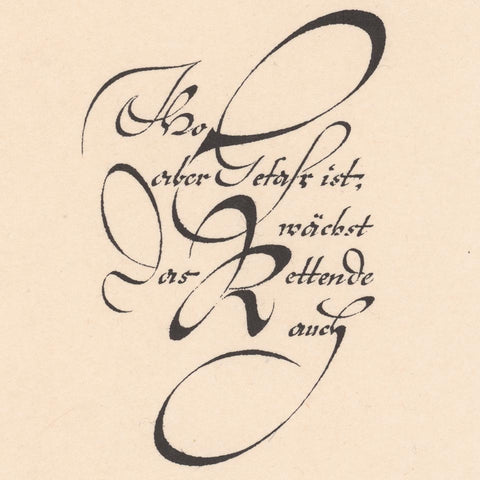 Wo
aber Gefahr ist,
wächst
Das Rettende
auch